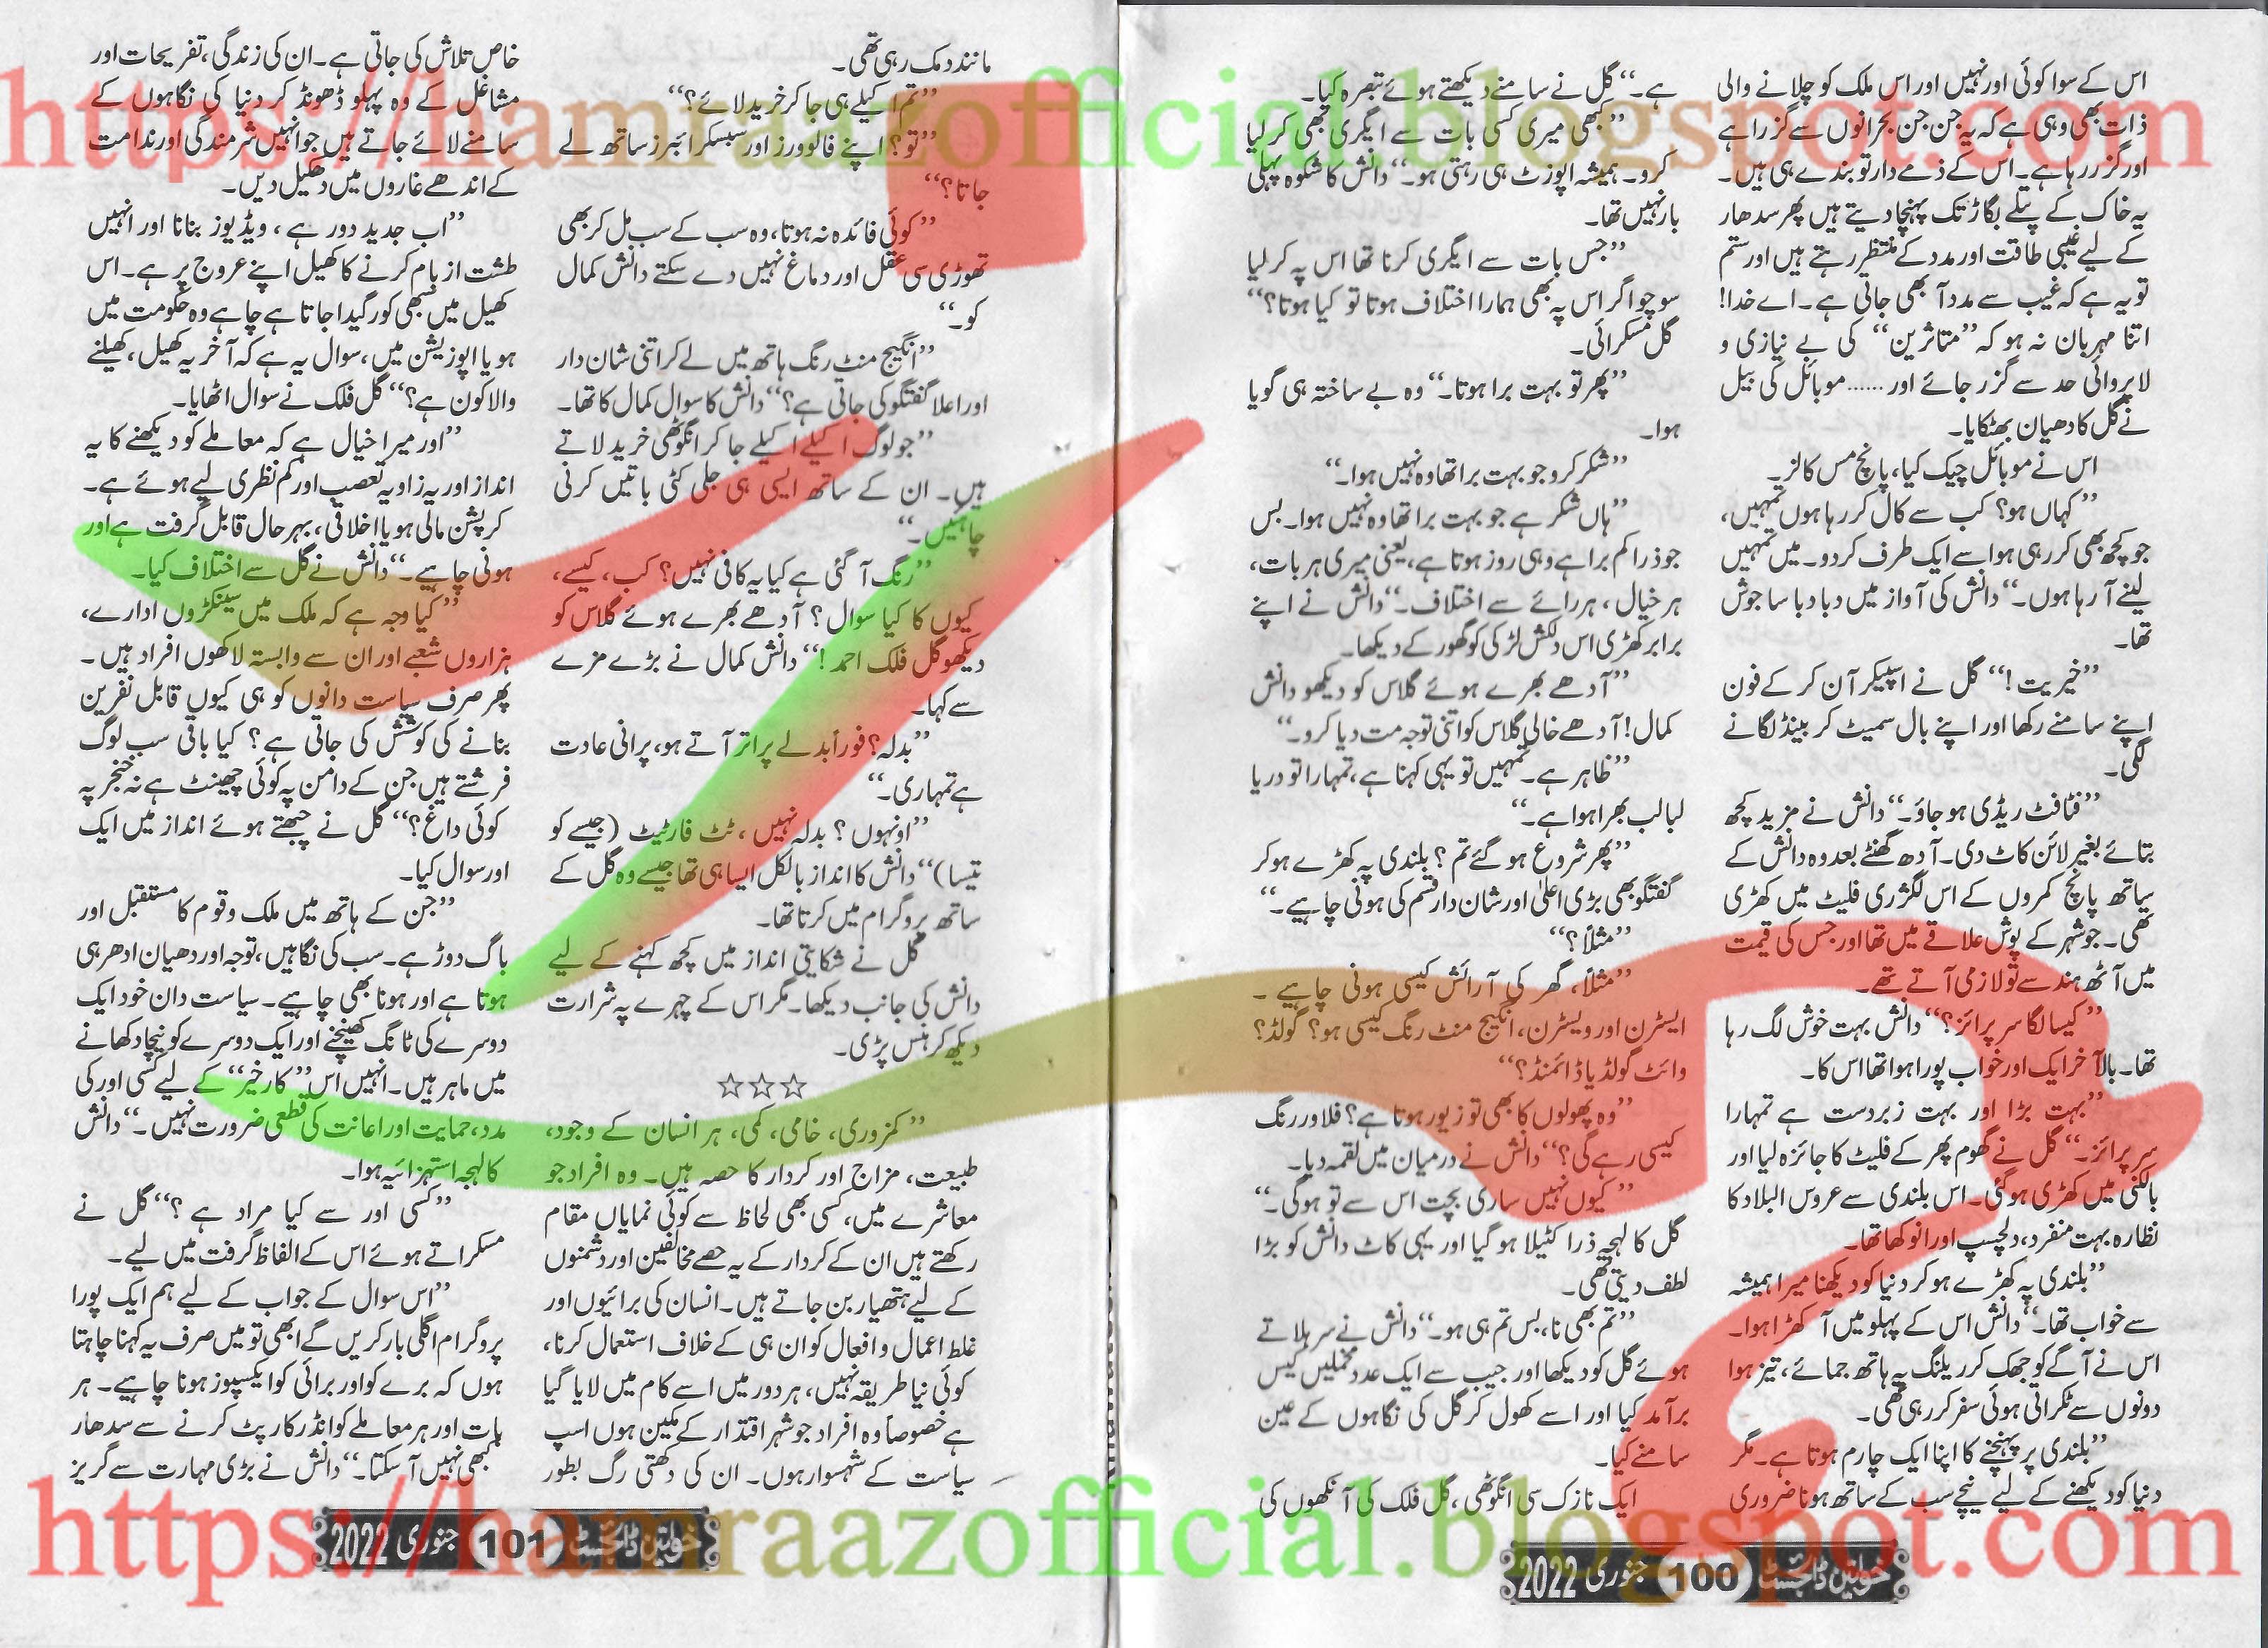 اس کے سوا کوئی اور نہیں اور اس ملک کو چلانے والی
ذات بھی وہی ہے کہ یہ جن جن بحرانوں سے گزرا ہے
اور گزر رہا ہے۔ اس کے ذمے دار تو بندے ہی ہیں۔
یہ خاک کے پتلے بگاڑ تک پہنچا دیتے ہیں پھر سدھار
کے لیے غیبی طاقت اور مدد کے منتظر رہتے ہیں اور ستم
تو یہ ہے کہ غیب سے مدد آ بھی جاتی ہے۔ اے خدا!
اتنا مہربان نہ ہو کہ ”متاثرین“ کی بے نیازی و
لاپروائی حد سے گزر جائے اور ...... موبائل کی بیل
نے گل کا دھیان بھٹکایا۔
اس نے موبائل چیک کیا، پانچ مس کالز۔
”کہاں ہو؟ کب سے کال کر رہا ہوں تمہیں،
جو کچھ بھی کر رہی ہو اسے ایک طرف کر دو۔ میں تمہیں
لینے آ رہا ہوں۔“ دانش کی آواز میں دبا دبا سا جوش
تھا۔
”خیریت!“ گل نے اسپیکر آن کر کے فون
اپنے سامنے رکھا اور اپنے بال سمیٹ کر بینڈ لگانے
لگی۔
”فٹافٹ ریڈی ہو جاؤ۔“ دانش نے مزید کچھ
بتائے بغیر لائن کاٹ دی۔ آدھ گھنٹے بعد وہ دانش کے
ساتھ پانچ کمروں کے اس لگژری فلیٹ میں کھڑی
تھی۔ جو شہر کے پوش علاقے میں تھا اور جس کی قیمت
میں آٹھ ہندسے تو لازمی آتے تھے۔
”کیسا لگا سرپرائز؟“ دانش بہت خوش لگ رہا
تھا۔ بالآخر ایک اور خواب پورا ہوا تھا اس کا۔
”بہت بڑا اور بہت زبردست ہے تمہارا
سرپرائز۔“ گل نے گھوم پھر کے فلیٹ کا جائزہ لیا اور
بالکنی میں کھڑی ہو گئی۔ اس بلندی سے عروس البلاد کا
نظارہ بہت منفرد، دلچسپ اور انوکھا تھا۔
”بلندی پہ کھڑے ہو کر دنیا کو دیکھنا میرا ہمیشہ
سے خواب تھا۔“ دانش اس کے پہلو میں آ کھڑا ہوا۔
اس نے آگے کو جھک کر ریلنگ پہ ہاتھ جمائے، تیز ہوا
دونوں سے ٹکراتی ہوئی سفر کر رہی تھی۔
”بلندی پر پہنچنے کا اپنا ایک چارم ہوتا ہے۔ مگر
دنیا کو دیکھنے کے لیے نیچے سب کے ساتھ ہونا ضروری
ہے۔“ گل نے سامنے دیکھتے ہوئے تبصرہ کیا۔
”کبھی میری کسی بات سے ایگری بھی کر لیا
کرو۔ ہمیشہ اپوزٹ ہی رہتی ہو۔“ دانش کا شکوہ پہلی
بار نہیں تھا۔
”جس بات سے ایگری کرنا تھا اس پہ کر لیا
سوچو اگر اس پہ بھی ہمارا اختلاف ہوتا تو کیا ہوتا؟“
گل مسکرائی۔
”پھر تو بہت برا ہوتا۔“ وہ بے ساختہ ہی گویا
ہوا۔
”شکر کرو جو بہت برا تھا وہ نہیں ہوا۔“
”ہاں شکر ہے جو بہت برا تھا وہ نہیں ہوا۔ بس
جو ذرا کم برا ہے وہی روز ہوتا ہے، یعنی میری ہر بات،
ہر خیال، ہر رائے سے اختلاف۔“ دانش نے اپنے
برابر کھڑی اس دلکش لڑکی کو گھور کے دیکھا۔
”آدھے بھرے ہوئے گلاس کو دیکھو دانش
کمال! آدھے خالی گلاس کو اتنی توجہ مت دیا کرو۔“
”ظاہر ہے۔ تمہیں تو یہی کہنا ہے، تمہارا تو دریا
لبالب بھرا ہوا ہے۔“
”پھر شروع ہو گئے تم؟ بلندی پہ کھڑے ہو کر
گفتگو بھی بڑی اعلیٰ اور شان دار قسم کی ہونی چاہیے۔“
”مثلاً؟“
”مثلاً، گھر کی آرائش کیسی ہونی چاہیے۔
ایسٹرن اور ویسٹرن، انگیج منٹ رنگ کیسی ہو؟ گولڈ؟
وائٹ گولڈ یا ڈائمنڈ؟“
”وہ پھولوں کا بھی تو زیور ہوتا ہے؟ فلاور رنگ
کیسی رہے گی؟“ دانش نے درمیان میں لقمہ دیا۔
”کیوں نہیں ساری بچت اس سے تو ہو گی۔“
گل کا لہجہ ذرا کٹیلا ہو گیا اور یہی کاٹ دانش کو بڑا
لطف دیتی تھی۔
”تم بھی نا، بس تم ہی ہو۔“ دانش نے سر ہلاتے
ہوئے گل کو دیکھا اور جیب سے ایک عدد مخملیں کیس
برآمد کیا اور اسے کھول کر گل کی نگاہوں کے عین
سامنے کیا۔
ایک نازک سی انگوٹھی، گل فلک کی آنکھوں کی
خواتین ڈائجسٹ 100 جنوری 2022
مانند دمک رہی تھی۔
”تم اکیلے ہی جا کر خرید لائے؟“
”تو؟ اپنے فالوورز اور سبسکرائبرز ساتھ لے
جاتا؟“
”کوئی فائدہ نہ ہوتا، وہ سب کے سب مل کر بھی
تھوڑی سی عقل اور دماغ نہیں دے سکتے دانش کمال
کو۔“
”انگیج منٹ رنگ ہاتھ میں لے کر اتنی شان دار
اور اعلا گفتگو کی جاتی ہے؟“ دانش کا سوال کمال کا تھا۔
”جو لوگ اکیلے اکیلے جا کر انگوٹھی خرید لاتے
ہیں۔ ان کے ساتھ ایسی ہی جلی کٹی باتیں کرنی
چاہئیں۔“
”رنگ آ گئی ہے کیا یہ کافی نہیں؟ کب، کیسے،
کیوں کا کیا سوال؟ آدھے بھرے ہوئے گلاس کو
دیکھو گل فلک احمد!“ دانش کمال نے بڑے مزے
سے کہا۔
”بدلہ؟ فوراً بدلے پر اتر آتے ہو، پرانی عادت
ہے تمہاری۔“
”اونہوں؟ بدلہ نہیں، ٹٹ فار ٹیٹ (جیسے کو
تیسا)“ دانش کا انداز بالکل ایسا ہی تھا جیسے وہ گل کے
ساتھ پروگرام میں کرتا تھا۔
گل نے شکایتی انداز میں کچھ کہنے کے لیے
دانش کی جانب دیکھا۔ مگر اس کے چہرے پہ شرارت
دیکھ کر ہنس پڑی۔
☆☆☆
”کمزوری، خامی، کمی، ہر انسان کے وجود،
طبیعت، مزاج اور کردار کا حصہ ہیں۔ وہ افراد جو
معاشرے میں، کسی بھی لحاظ سے کوئی نمایاں مقام
رکھتے ہیں ان کے کردار کے یہ حصے مخالفین اور دشمنوں
کے لیے ہتھیار بن جاتے ہیں۔ انسان کی برائیوں اور
غلط اعمال و افعال کو ان ہی کے خلاف استعمال کرنا،
کوئی نیا طریقہ نہیں، ہر دور میں اسے کام میں لایا گیا
ہے خصوصاً وہ افراد جو شہر اقتدار کے مکین ہوں اسپ
سیاست کے شہسوار ہوں۔ ان کی دکھتی رگ بطور
خاص تلاش کی جاتی ہے۔ ان کی زندگی، تفریحات اور
مشاغل کے وہ پہلو ڈھونڈ کر دنیا کی نگاہوں کے
سامنے لائے جاتے ہیں جو انہیں شرمندگی اور ندامت
کے اندھے غاروں میں دھکیل دیں۔
”اب جدید دور ہے، ویڈیوز بنانا اور انہیں
طشت از بام کرنے کا کھیل اپنے عروج پر ہے۔ اس
کھیل میں سبھی کو رگیدا جاتا ہے چاہے وہ حکومت میں
ہو یا اپوزیشن میں، سوال یہ ہے کہ آخر یہ کھیل، کھیلنے
والا کون ہے؟“ گل فلک نے سوال اٹھایا۔
”اور میرا خیال ہے کہ معاملے کو دیکھنے کا یہ
انداز اور یہ زاویہ تعصب اور کم نظری لیے ہوئے ہے۔
کرپشن مالی ہو یا اخلاقی، بہر حال قابل گرفت ہے اور
ہونی چاہیے۔“ دانش نے گل سے اختلاف کیا۔
”کیا وجہ ہے کہ ملک میں سینکڑوں ادارے،
ہزاروں شعبے اور ان سے وابستہ لاکھوں افراد ہیں۔
پھر صرف سیاست دانوں کو ہی کیوں قابل نفرین
بنانے کی کوشش کی جاتی ہے؟ کیا باقی سب لوگ
فرشتے ہیں جن کے دامن پہ کوئی چھینٹ ہے نہ خنجر پہ
کوئی داغ؟“ گل نے چبھتے ہوئے انداز میں ایک
اور سوال کیا۔
”جن کے ہاتھ میں ملک و قوم کا مستقبل اور
باگ دوڑ ہے۔ سب کی نگاہیں، توجہ اور دھیان ادھر ہی
ہوتا ہے اور ہونا بھی چاہیے۔ سیاست دان خود ایک
دوسرے کی ٹانگ کھینچنے اور ایک دوسرے کو نیچا دکھانے
میں ماہر ہیں۔ انہیں اس ”کار خیر“ کے لیے کسی اور کی
مدد، حمایت اور اعانت کی قطعی ضرورت نہیں۔“ دانش
کا لہجہ استہزائیہ ہوا۔
”کسی اور سے کیا مراد ہے؟“ گل نے
مسکراتے ہوئے اس کے الفاظ گرفت میں لیے۔
”اس سوال کے جواب کے لیے ہم ایک پورا
پروگرام اگلی بار کریں گے ابھی تو میں صرف یہ کہنا چاہتا
ہوں کہ برے کو اور برائی کو ایکسپوز ہونا چاہیے۔ ہر
بات اور ہر معاملے کو انڈر کارپٹ کرنے سے سدھار
کبھی نہیں آ سکتا۔“ دانش نے بڑی مہارت سے گریز
خواتین ڈائجسٹ 101 جنوری 2022
https://hamraazofficial.blogspot.com
https://hamraazofficial.blogspot.com